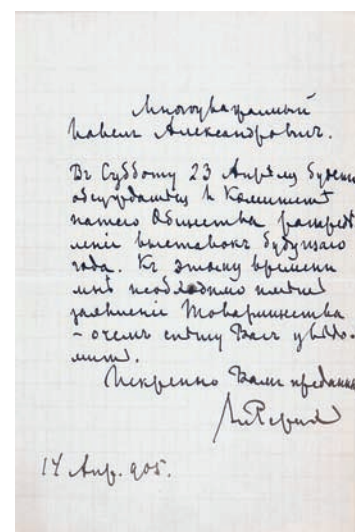 Многоуважаемый
Павелъ Александровичъ.
Въ Субботу 23 Апрѣля будетъ
обсуждаться въ Комитетѣ
нашего Общества распредѣ
леніе выставокъ будущаго
года. Къ этому времени
мнѣ необходимо имѣть
заявленіе Товарищества
- о чемъ спѣшу Васъ увѣдо-
мить.
Искренно Вамъ преданный
НРерих
14 Апр. 905.